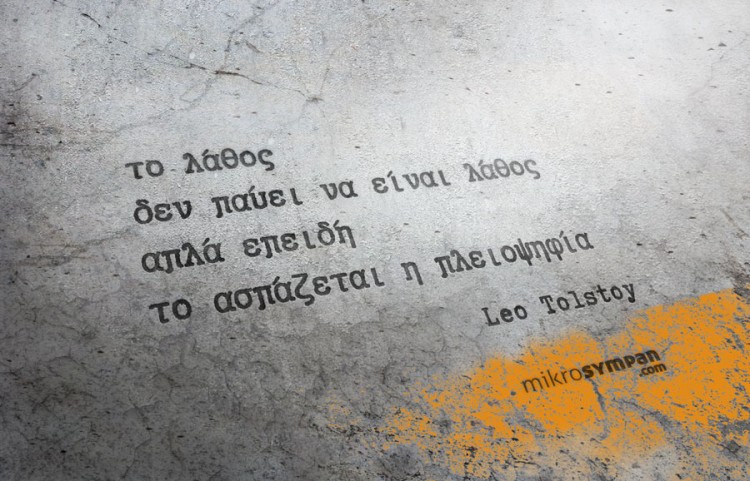 το λάθος
δεν παύει να είναι λάθος
απλά επειδή
το ασπάζεται η πλειοψηφία
Leo Tolstoy
mikroSYMPAN
.com